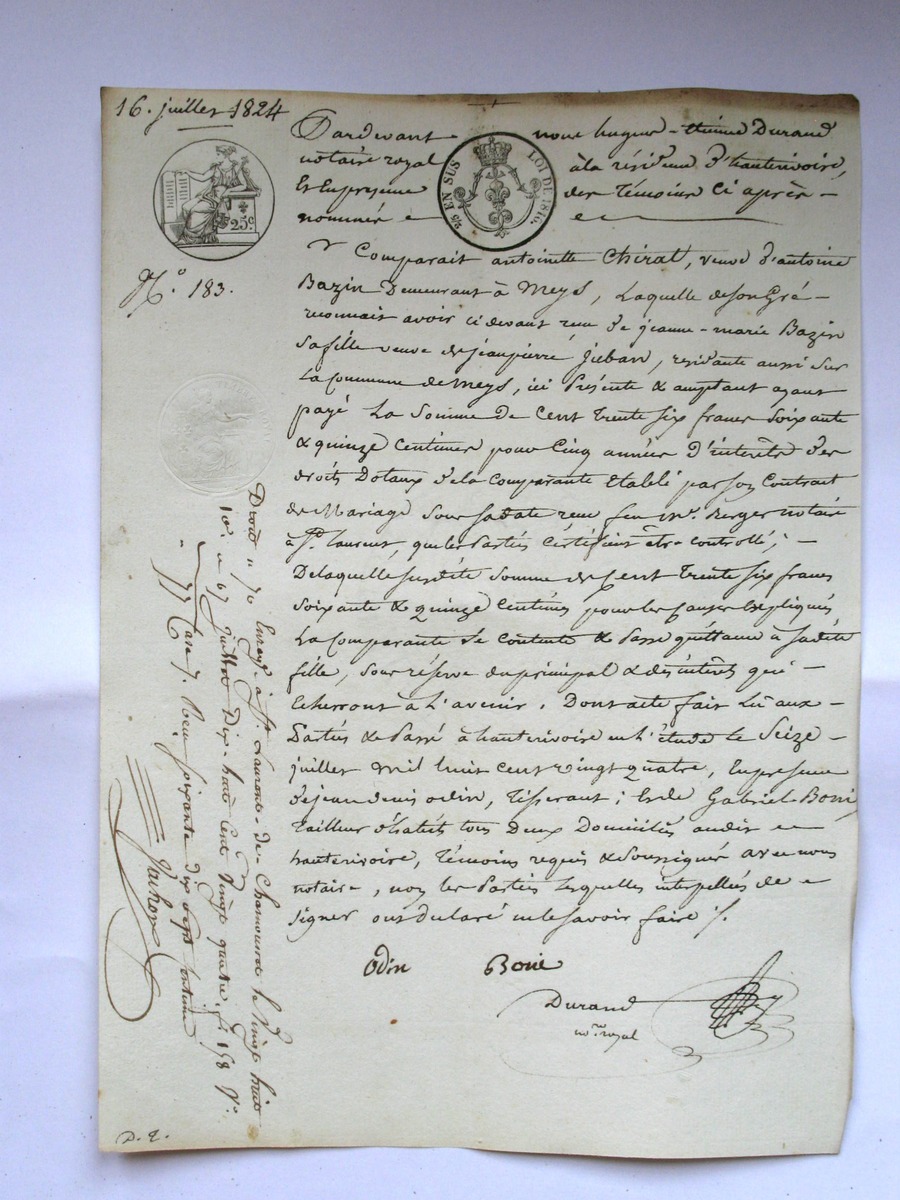 16. juillet 1824
Pardevant nous hugues-Etienne Durand
notaire royal à la résidence d'hauterivoire,
Et En presence des Témoins Ci après
nommés
25c
2/5 EN SUS LOI DE 1816.
Comparait antoinette Chirat, veuve d'antoine
N.o 183.
Bazin Demeurant à Meys, Laquelle de son Gré
reconnait avoir ci devant reçu de jeanne-marie Bazin
sa fille veuve de jeanpierre juban, residante aussi sur
La Commune de Meys, ici Présente & acceptant ayant
payé La Somme de Cent trente six francs Soixante
& quinze Centimes pour Cinq années d'intérêts des
droits Dotaux de la Comparante Etablé par son Contrat
de Mariage Sous sa date reçu feu m.e Berger notaire
à St. laurent, que les Parties Certifient être controllé ;
De laquelle susdite Somme de Cent trente Six francs
soixante & quinze Centimes pour les Causes Expliquées
La Comparante Se Contente & Passe quittance à sadite
fille, sous réserve du principal & des intérêts qui
Echerront à l'avenir. Dont acte fait Lû aux
Parties & Passé à hauterivoire en l'étude Le Seize
juillet Mil huit Cent vingt quatre, En presence
de jean denis odin, Tisserant ; & de Gabriel Boni
Tailleur d'habits tous Deux Domiciliés audit
hauterivoire, Témoins requis & Soussignés avec nous
notaire, non les Parties Lesquelles interpellées de
signer ont declaré ne le savoir faire /.
Odin Boni
Durand
no.re royal
Enreg.é à St. Laurent-de-Chamousset le vingt huit
juillet Dix-huit Cent vingt quatre, f.o 158 V.o
soixante dix sept centimes
D. Q.